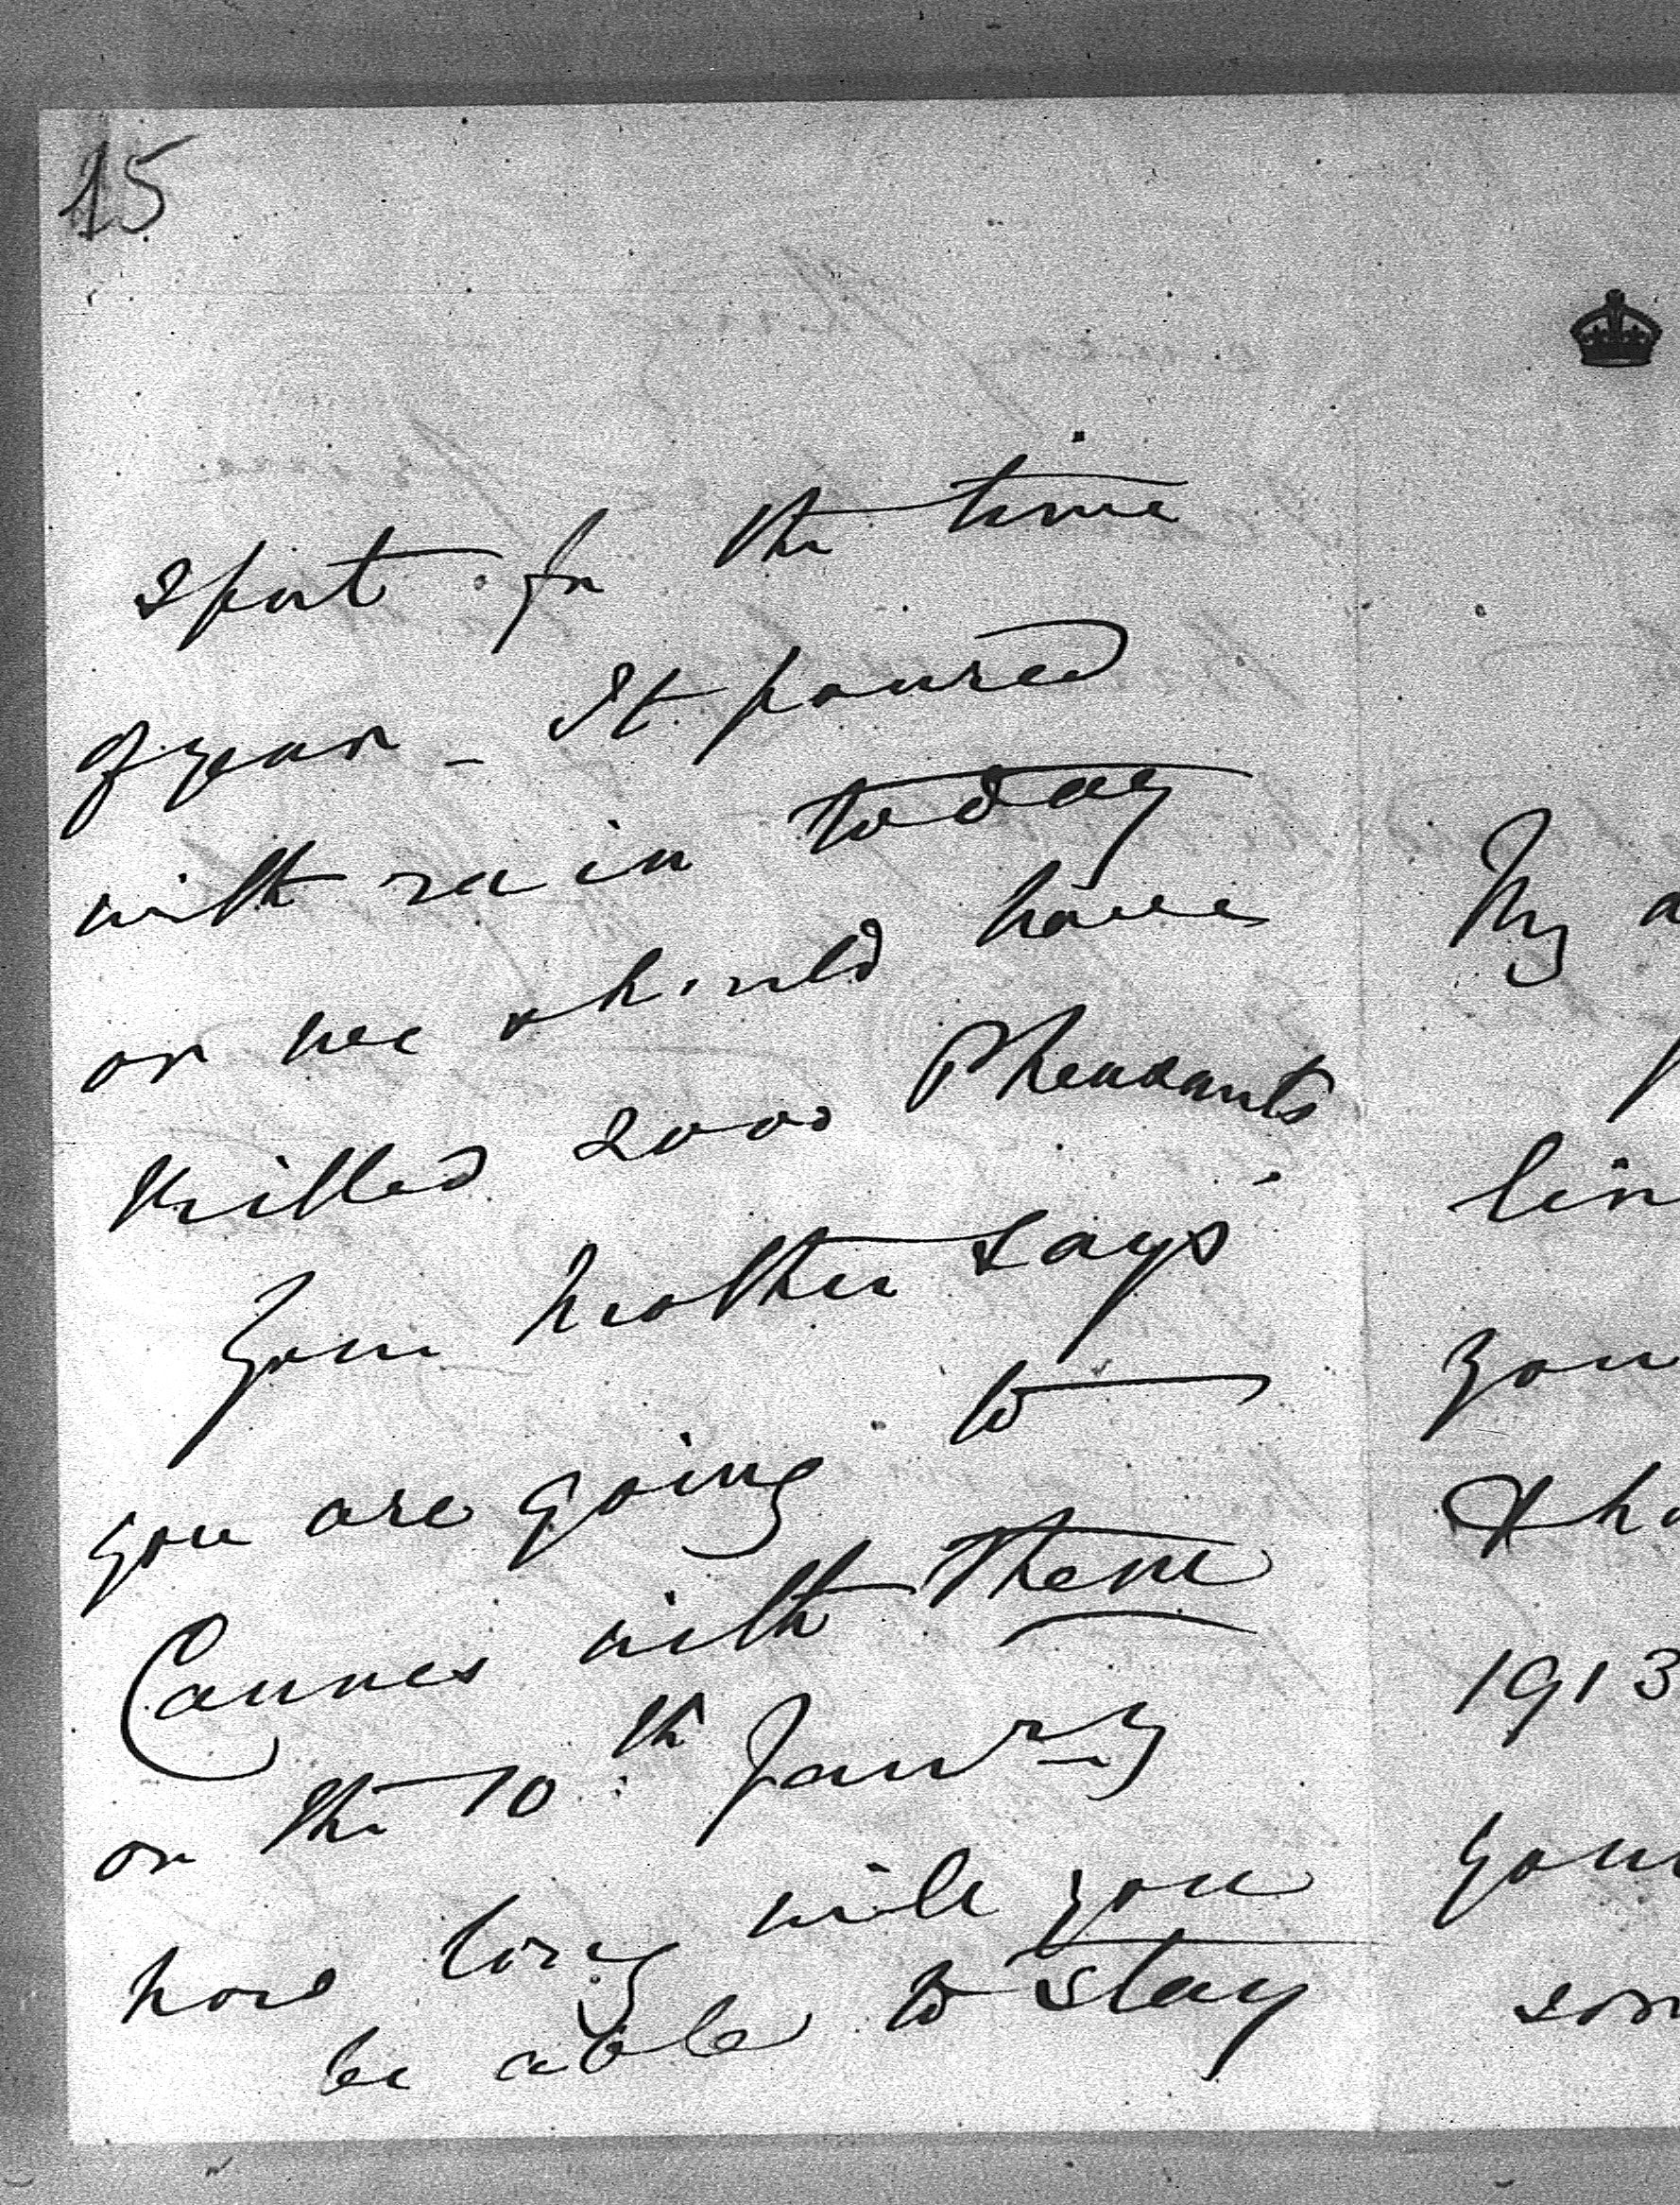 15
sport for the time
of year _ It poured
with rain today
or we should have
killed 2000 Pheasants
Your mother says
you are going to
Cannes with them
on the 10th Janry
how long will you
be able to stay
My
lin
you
& ha
1913
you
som